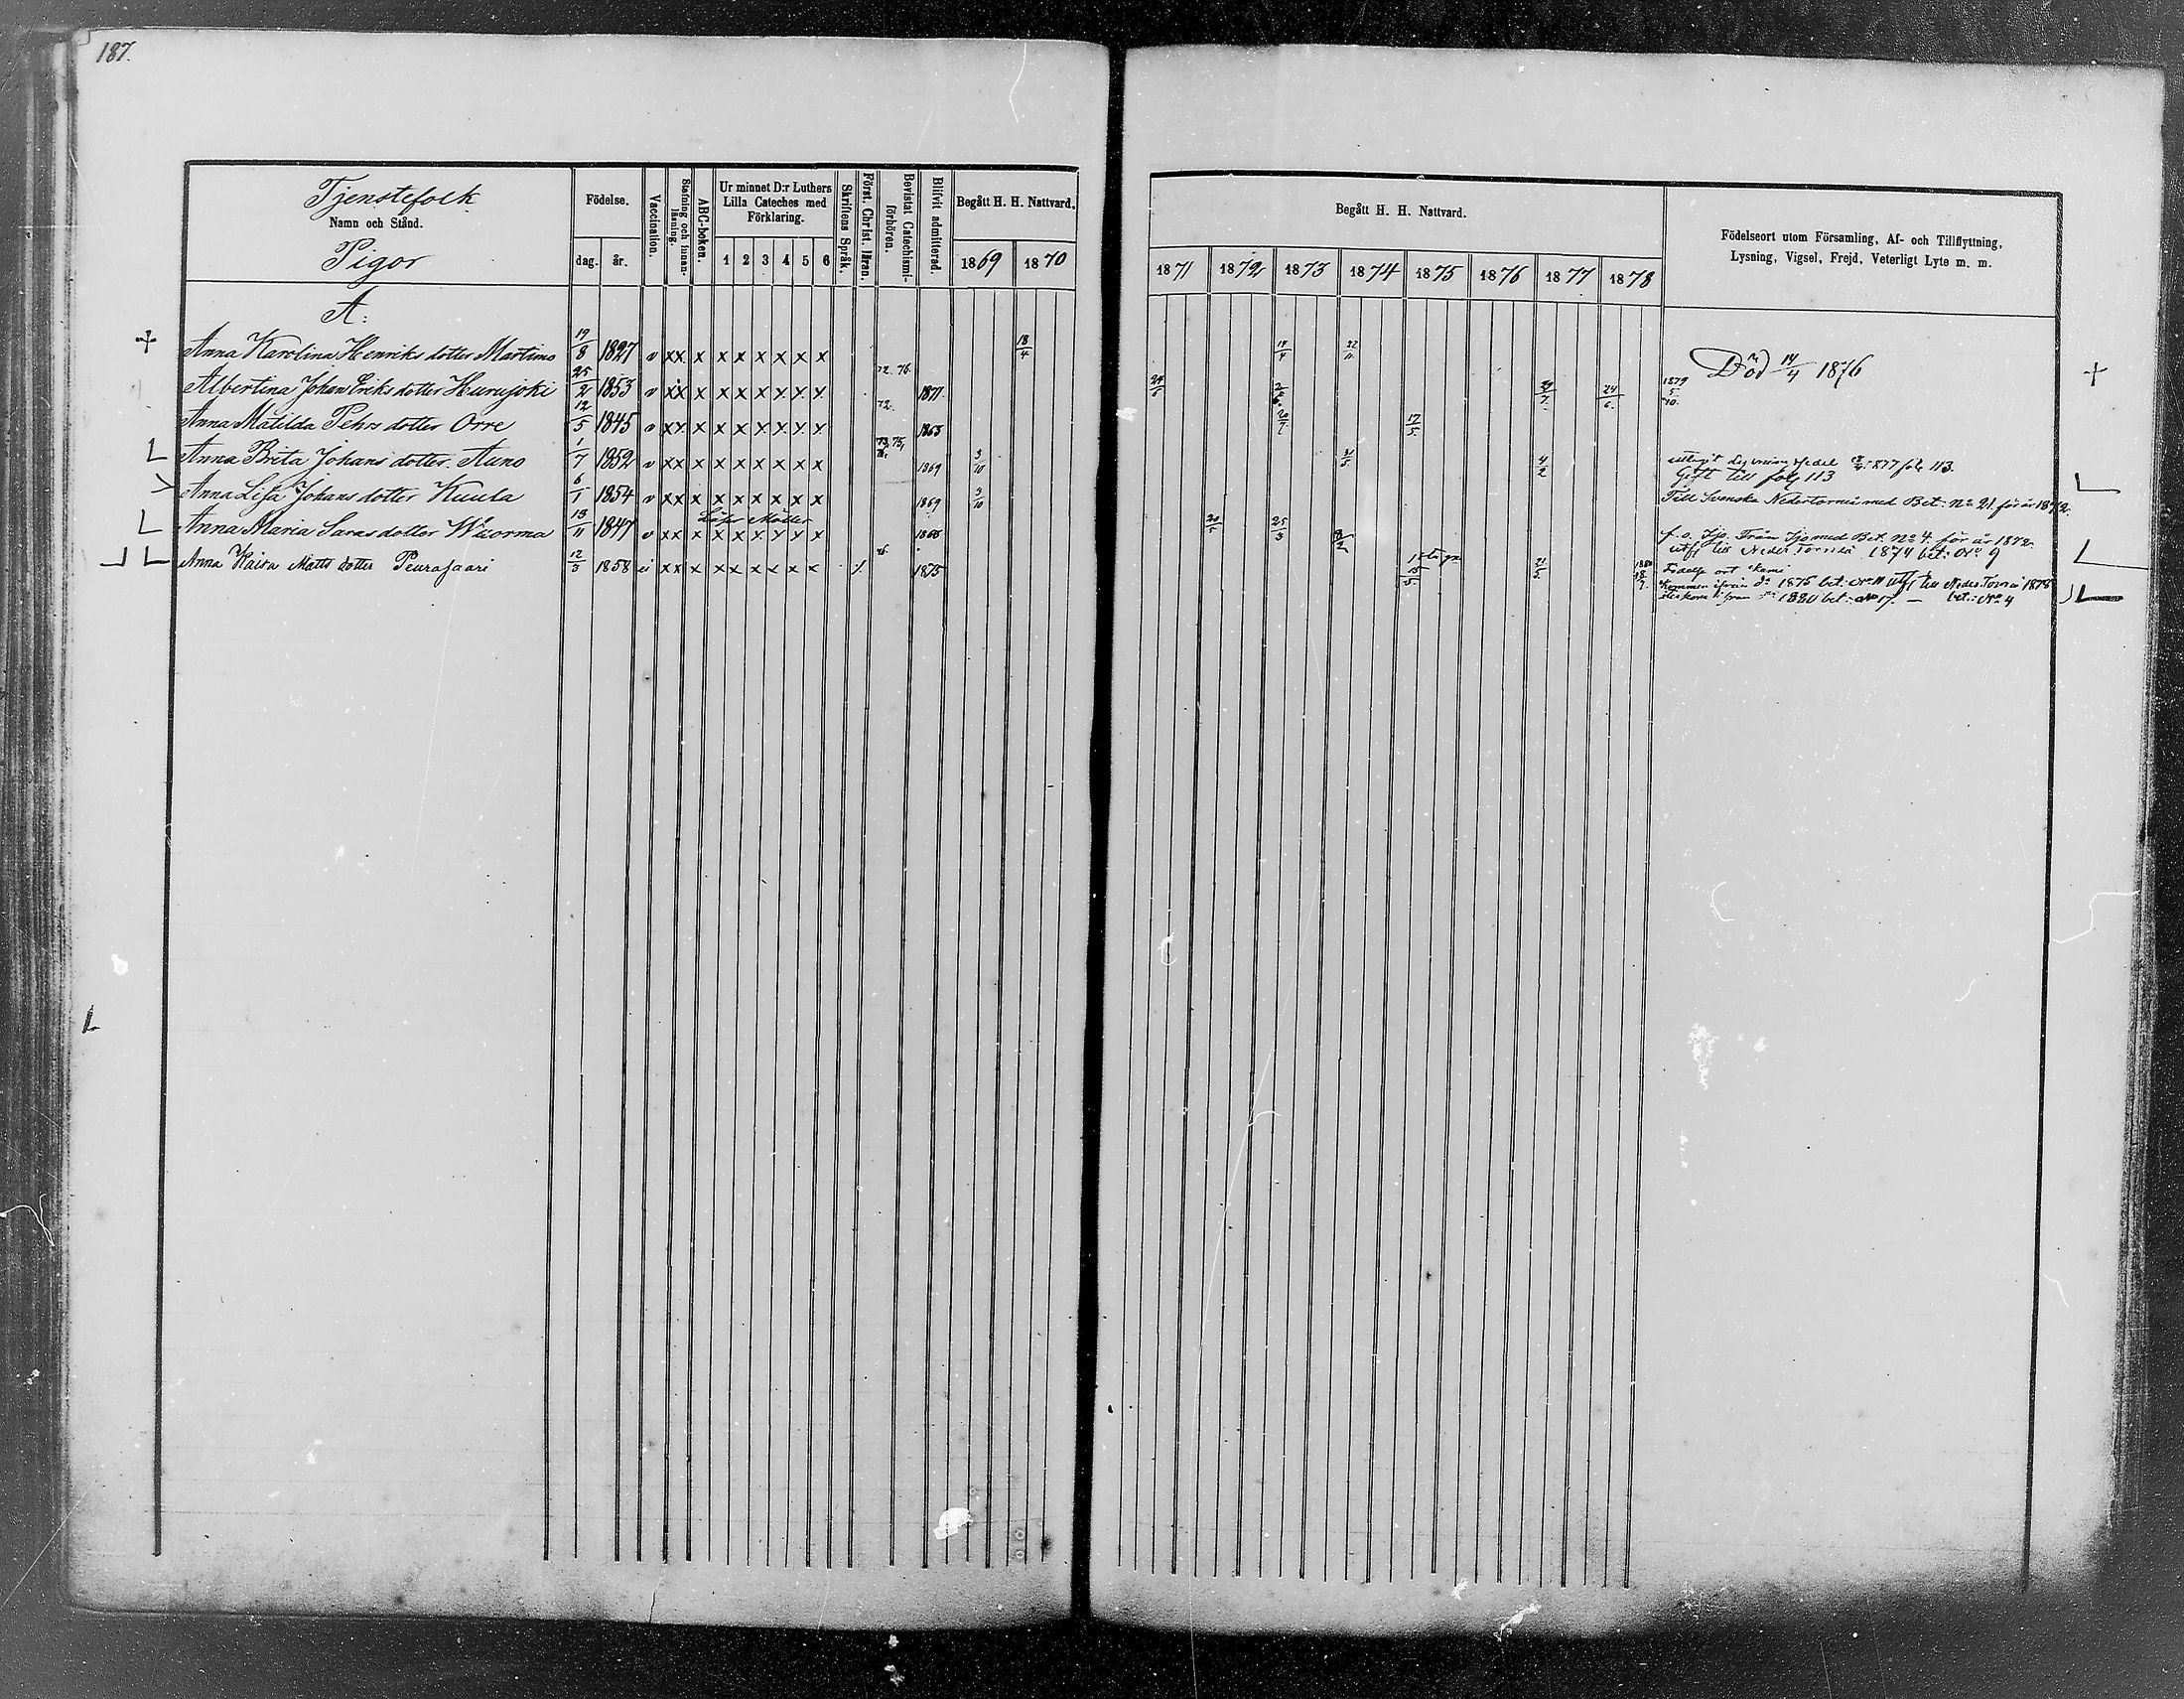 187.
Tjenstefolk
Namn och Stånd.
Pigor
Födelse.
dag. år.
Vaccination.
Stafning och innanläsning.
ABC-boken.
Ur minnet D:r Luthers Lilla Cateches med Förklaring.
1 2 3 4 5 6
Skriftens Språk.
Först. Christ. läran.
Bevistat Catechismi-förhören.
Blifvit admitterad.
Begått H. H. Nattvard.
1869 1870
Begått H. H. Nattvard.
1871 1872 1873 1874 1875 1876 1877 1878
Födelseort utom Församling, Af- och Tillflyttning,
Lysning, Vigsel, Frejd, Veterligt Lyte m. m.
A:
Anna Karolina Henriks dotter Martimo 19/8 1827 v x x x x x x x x x 18/4 19/4 22/11 Död 14/4 1876
Albertina Johan Eriks dotter Hurujoki 25/2 1853 v x x x x x x x x x 72. 76. 1871 24/6 29/7 24/6 1879 5/10
Anna Matilda Pehrs dotter Orre 12/5 1845 v x x x x x x x x x 72. 1863 20/7 17/5
Anna Brita Johans dotter Auno 1/7 1852 v x x x x x x x x x 1869 3/10 31/5 4/2 1877 fol. 113.
Gift till fol. 113
Anna Lisa Johans dotter Kuula 6/1 1854 v x x x x x x x x x 1869 3/10 Till Svenska Nedertorneå med Bet: No 21. för år 1872.
Läser Mölier
Anna Maria Saras dotter Wuorma 13/11 1847 v x x x x x x x x x 1866 20/5 25/3 f. o. Ijo. Från Ijo med Bet. No 4. för år 1872.
utfl till Neder Torneå 1874 bet: No 9
Anna Kaisa Matts dotter Peurasaari 12/3 1858 ei x x x x x x x x x 1875 15/5 21/5 1880 18/7 Födelse ort Kemi
Kommen ifrån do 1875 bet: No 11 utfl till Neder Torneå 1878
ifrån do 1880 bet: No 17. — bet.: No 4